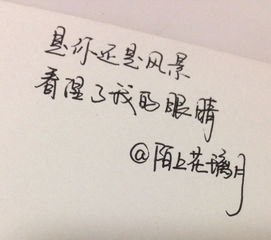 是你还是风景
看湿了我的眼睛
@陌上花璃月